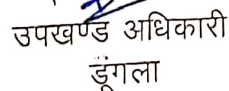 उपखण्ड अधिकारी
डूंगला